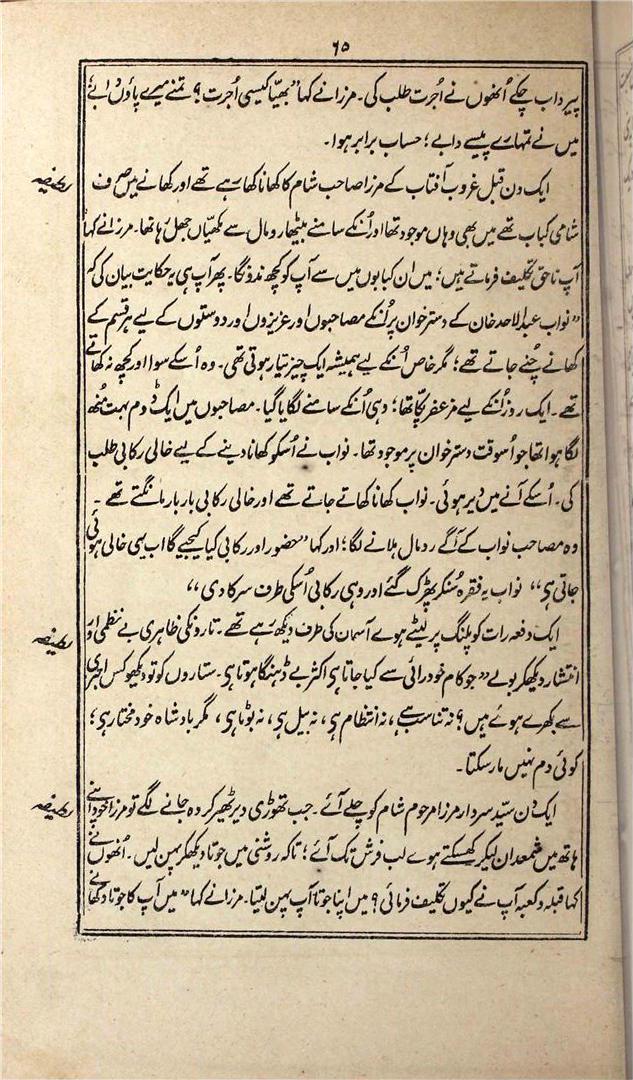 ۶۵
پیر داب چکے اُنھوں نے اُجرت طلب کی۔ مرزا نے کہا "بھیّا کیسی اُجرت؟ تمنے میرے پاؤں دابے؛
میں نے تمہارے پیسے دابے؛ حساب برابر ہوا۔
لطیفہ
ایک دن قبل غروب آفتاب کے مرزا صاحب شام کا کھانا کھا رہے تھے اور کھانے میں صرف
شامی کباب تھے میں بھی وہاں موجود تھا اور اُنکے سامنے بیٹھا رومال سے مکھیاں جھل رہا تھا۔ مرزا نے کہا
آپ ناحق تکلیف فرماتے ہیں؛ میں ان کبابوں میں سے آپ کو کچھ ندونگا۔ پھر آپ ہی یہ حکایت بیان کی کہ
"نواب عبدالاحد خان کے دسترخوان پر اُنکے مصاحبوں اور عزیزوں اور دوستوں کے لیے ہر قسم کے
کھانے چُنے جاتے تھے؛ مگر خاص اُنکے لیے ہمیشہ ایک چیز تیار ہوتی تھی۔ وہ اُسکے سوا اور کچھ نہ کھاتے
تھے۔ ایک روز اُنکے لیے مزعفر پکا تھا؛ وہی اُنکے سامنے لگایا گیا۔ مصاحبوں میں ایک ڈوم بہت مُنھ
لگا ہوا تھا جو اُسوقت دسترخوان پر موجود تھا۔ نواب نے اُسکو کھانا دینے کے لیے خالی رکابی طلب
کی۔ اُسکے آنے میں دیر ہوئی۔ نواب کھانا کھاتے جاتے تھے اور خالی رکابی بار بار مانگتے تھے۔
وہ مصاحب نواب کے آگے رومال ہلانے لگا؛ اور کہا "حضور اور رکابی کیا کیجیے گا اب یہی خالی ہوئی
جاتی ہی" نواب یہ فقرہ سُنکر پھڑک گئے اور وہی رکابی اُسکی طرف سرکا دی"
لطیفہ
ایک دفعہ رات کو پلنگ پر لیٹے ہوے آسمان کی طرف دیکھ رہے تھے۔ تارونکی ظاہری بے نظمی اور
انتشار دیکھکر بولے "جو کام خودرائی سے کیا جاتا ہی اکثر بے ڈہنگا ہوتا ہی۔ ستاروں کو تو دیکھو کس ابتری
سے بکھرے ہوئے ہیں؟ نہ تناسب ہے، نہ انتظام ہی، نہ بیل ہی، نہ بوٹا ہی، مگر بادشاہ خودمختار ہی؛
کوئی دم نہیں مار سکتا۔
لطیفہ
ایک دن سیّد سردار مرزا مرحوم شام کو چلے آئے۔ جب تھوڑی دیر ٹھیر کر وہ جانے لگے تو مرزا خود اپنے
ہاتھ میں شمعدان لیکر کھسکتے ہوے لب فرش تک آئے؛ تاکہ روشنی میں جوتا دیکھکر پہن لیں۔ اُنھوں نے
کہا قبلہ و کعبہ آپ نے کیوں تکلیف فرمائی؟ میں اپنا جوتا آپ پہن لیتا۔ مرزا نے کہا "میں آپ کا جوتا دکھانے